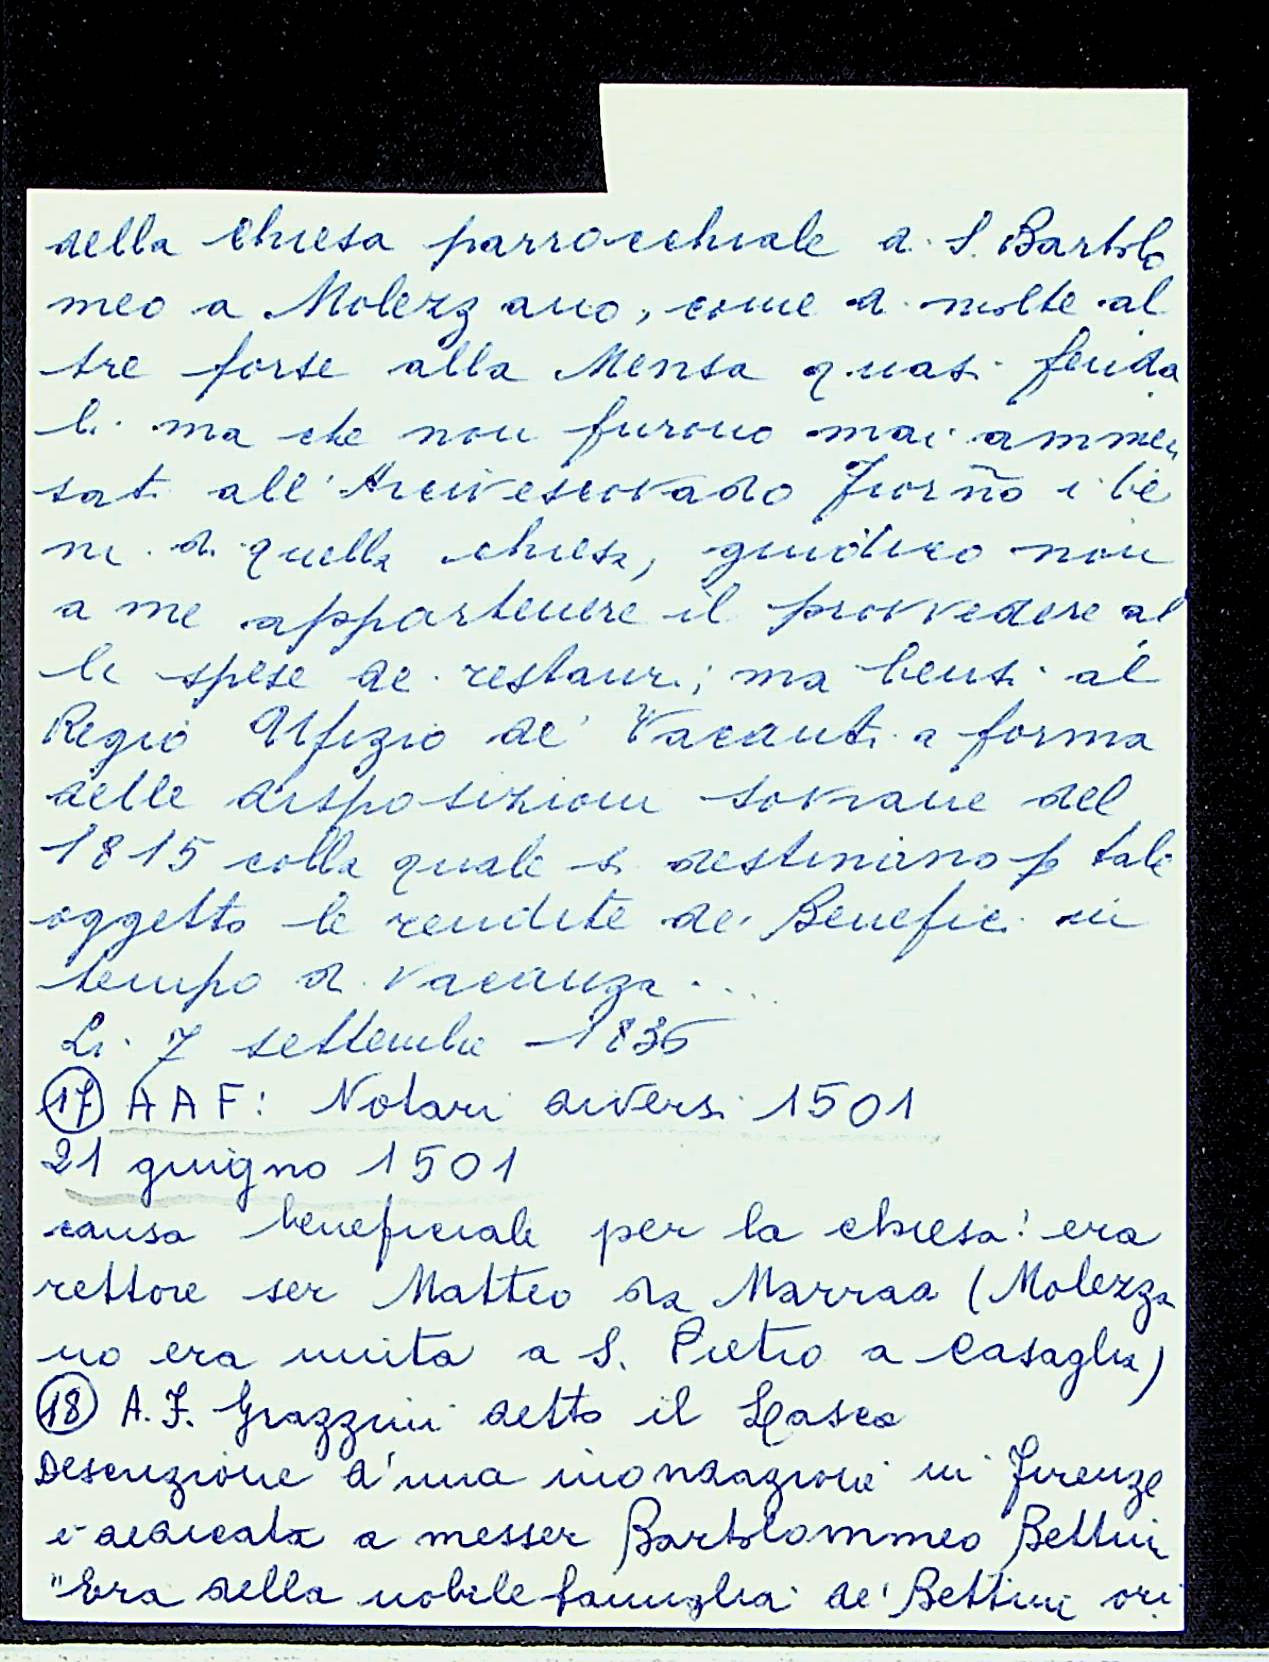 della chiesa parrocchiale di S. Bartolo
meo a Molezzano, come di molte al
tre forse alla Mensa quasi feuda
li ma che non furono mai ammen
sati all'Arcivescovado Fiorño i be
ni di quella chiesa, giudico non
a me appartenere il provvedere al
le spese de restauri; ma bensì al
Regio Ufizio de' Vacanti a forma
delle disposizioni sovrane del
1815 colla quale si destinano p tale
oggetto le rendite de' Benefici in
tempo di vacanza....
Li 7 settembre 1836
(17) AAF: Notari diversi 1501
21 giugno 1501
causa beneficiale per la chiesa: era
rettore ser Matteo da Marraa (Molezza
no era unita a S. Pietro a Casaglia)
(18) A.F. Grazzini detto il Lasca
Descrizione d'una inondazione in Firenze
è dedicata a messer Bartolommeo Bettini
"Era della nobile famiglia de' Bettini ori